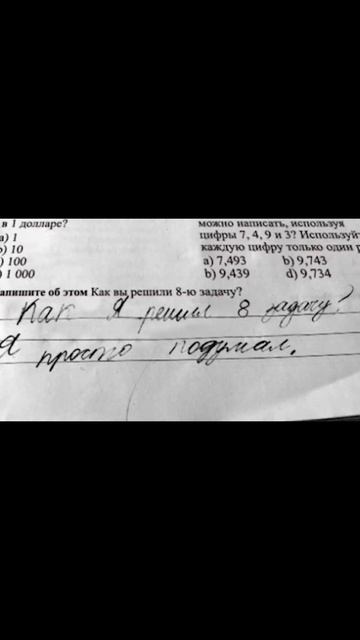 в 1 долларе?
a) 1
b) 10
) 100
) 1 000
можно написать, используя
цифры 7, 4, 9 и 3? Используйт
каждую цифру только один р
a) 7,493 b) 9,743
b) 9,439 d) 9,734
апишите об этом Как вы решили 8-ю задачу?
Как Я решил 8 задачу?
Я просто подумал.